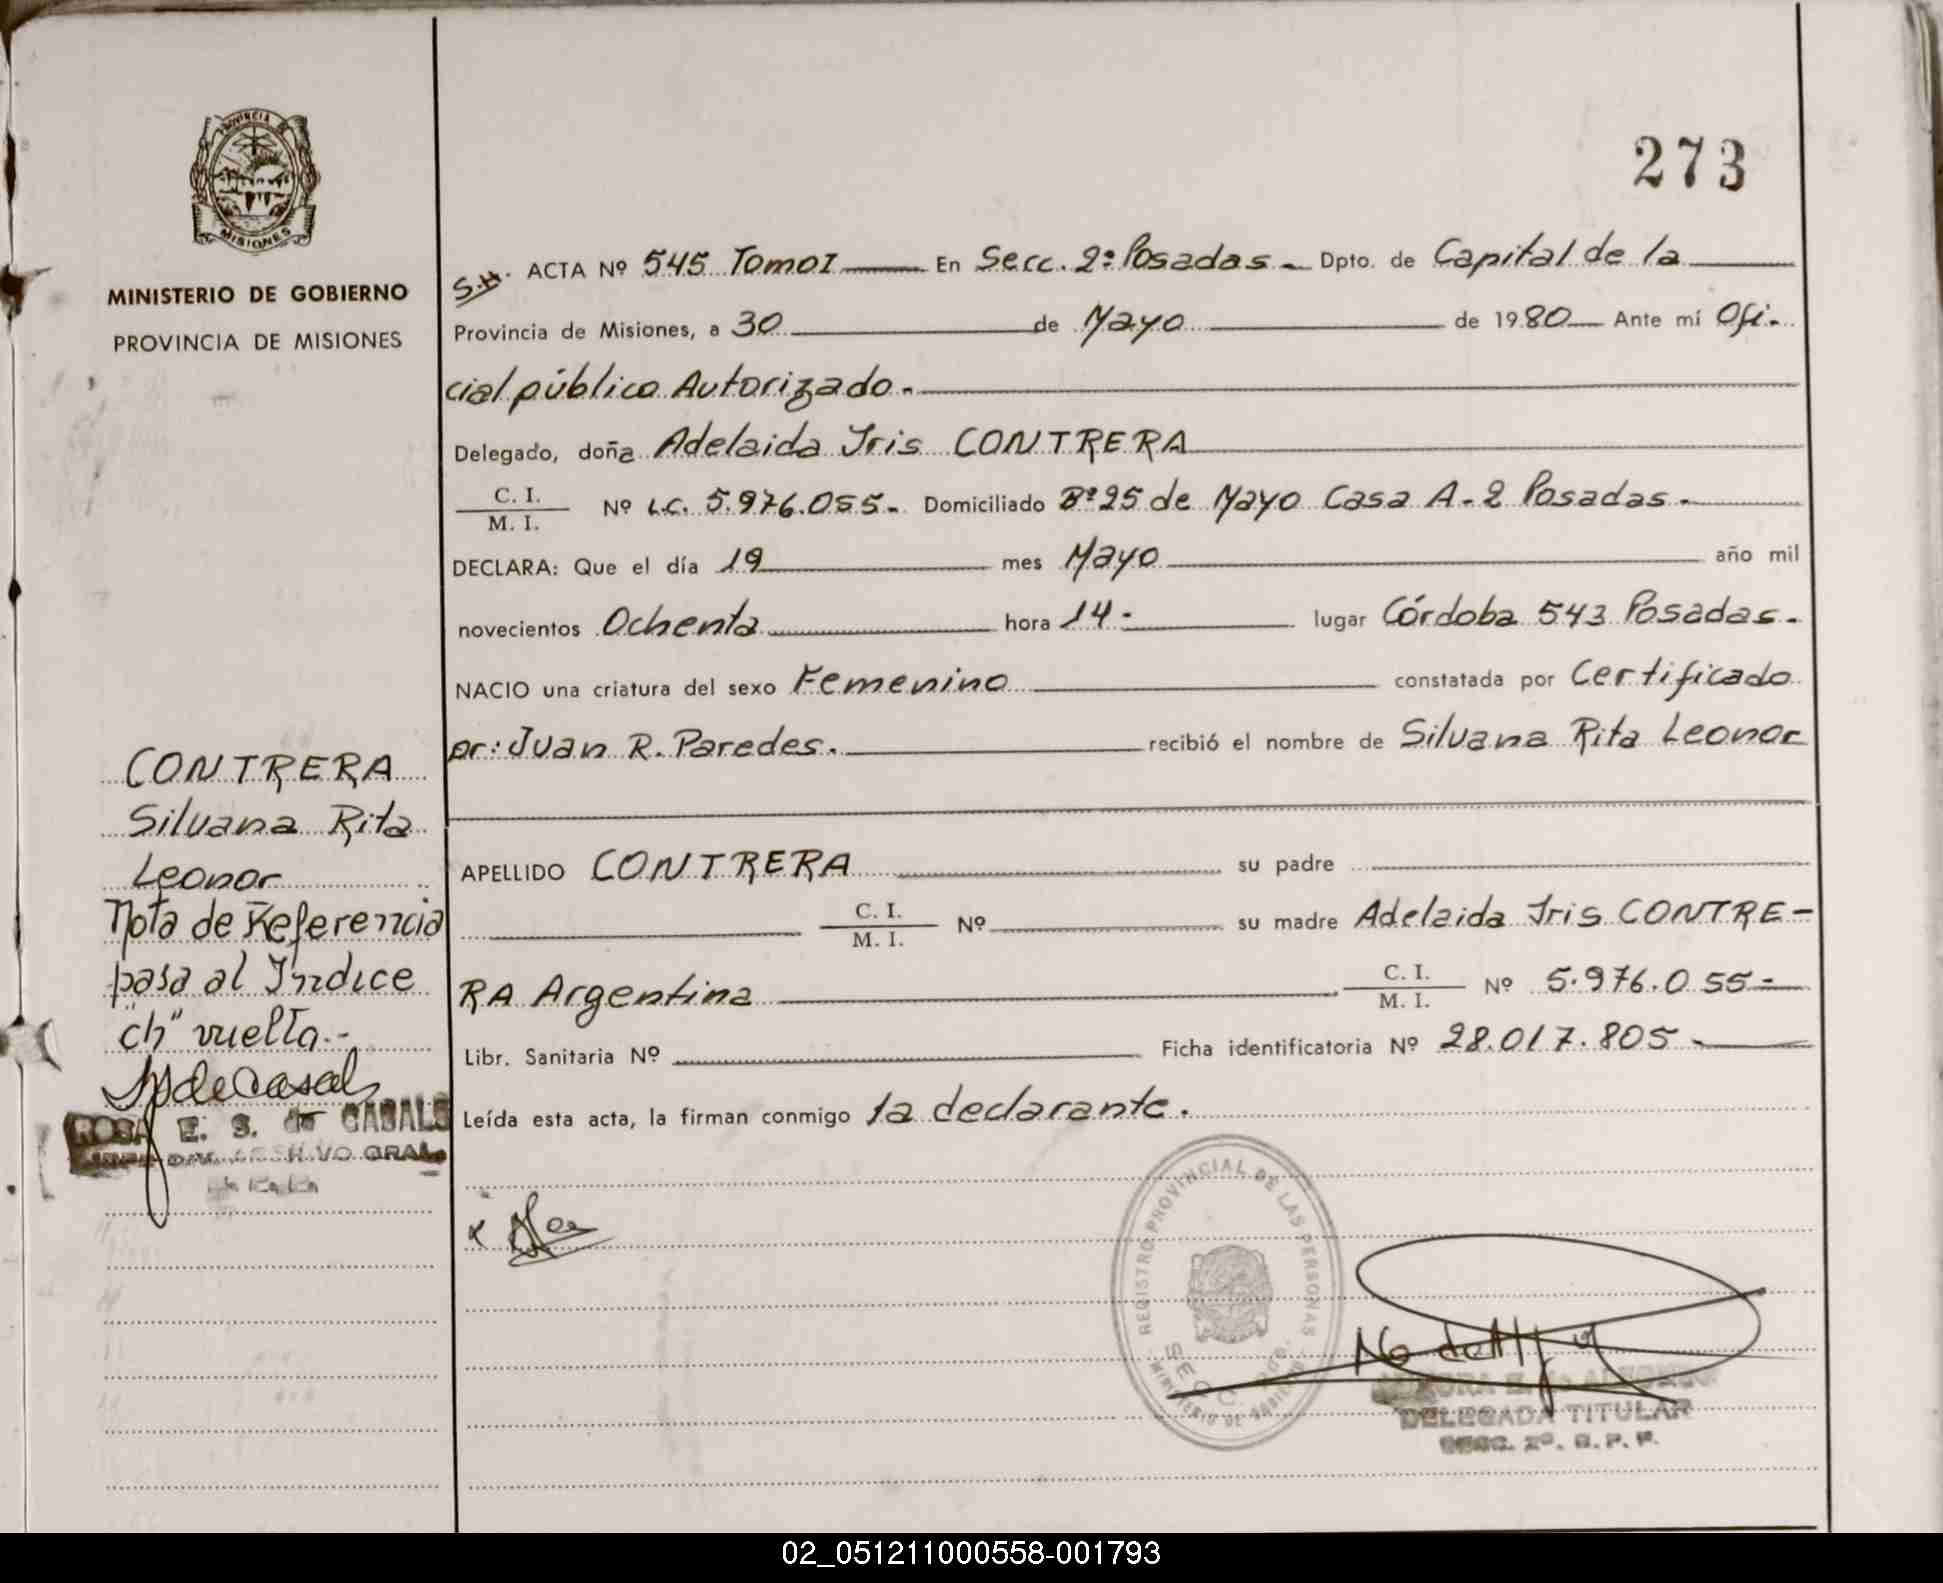 273
PROVINCIA DE
MISIONES
MINISTERIO DE GOBIERNO
PROVINCIA DE MISIONES
S.H. ACTA Nº 545 Tomo I En Secc. 2ª Posadas - Dpto. de Capital de la
Provincia de Misiones, a 30 de Mayo de 1980 Ante mí Ofi-
cial público Autorizado.-
Delegado, doña Adelaida Iris CONTRERA
C. I.
M. I. Nº L.C. 5.976.055.- Domiciliado Bº 25 de Mayo Casa A-2 Posadas.-
DECLARA: Que el día 19 mes Mayo año mil
novecientos Ochenta hora 14- lugar Córdoba 543 Posadas.-
NACIO una criatura del sexo Femenino constatada por Certificado
pr: Juan R. Paredes. recibió el nombre de Silvana Rita Leonor
APELLIDO CONTRERA su padre
C. I.
M. I. Nº su madre Adelaida Iris CONTRE-
RA Argentina C. I.
M. I. Nº 5.976.055-
Libr. Sanitaria Nº Ficha identificatoria Nº 28.017.805-
Leída esta acta, la firman conmigo la declarante.
CONTRERA
Silvana Rita
Leonor
Nota de Referencia
pasa al Indice
"ch" vuelta.-
ROSA E. S. de CASALS
REGISTRO PROVINCIAL DE LAS PERSONAS
MINISTERIO DE GOBIERNO
DELEGADA TITULAR
SECC. 2ª. R. P. P.
02_051211000558-001793